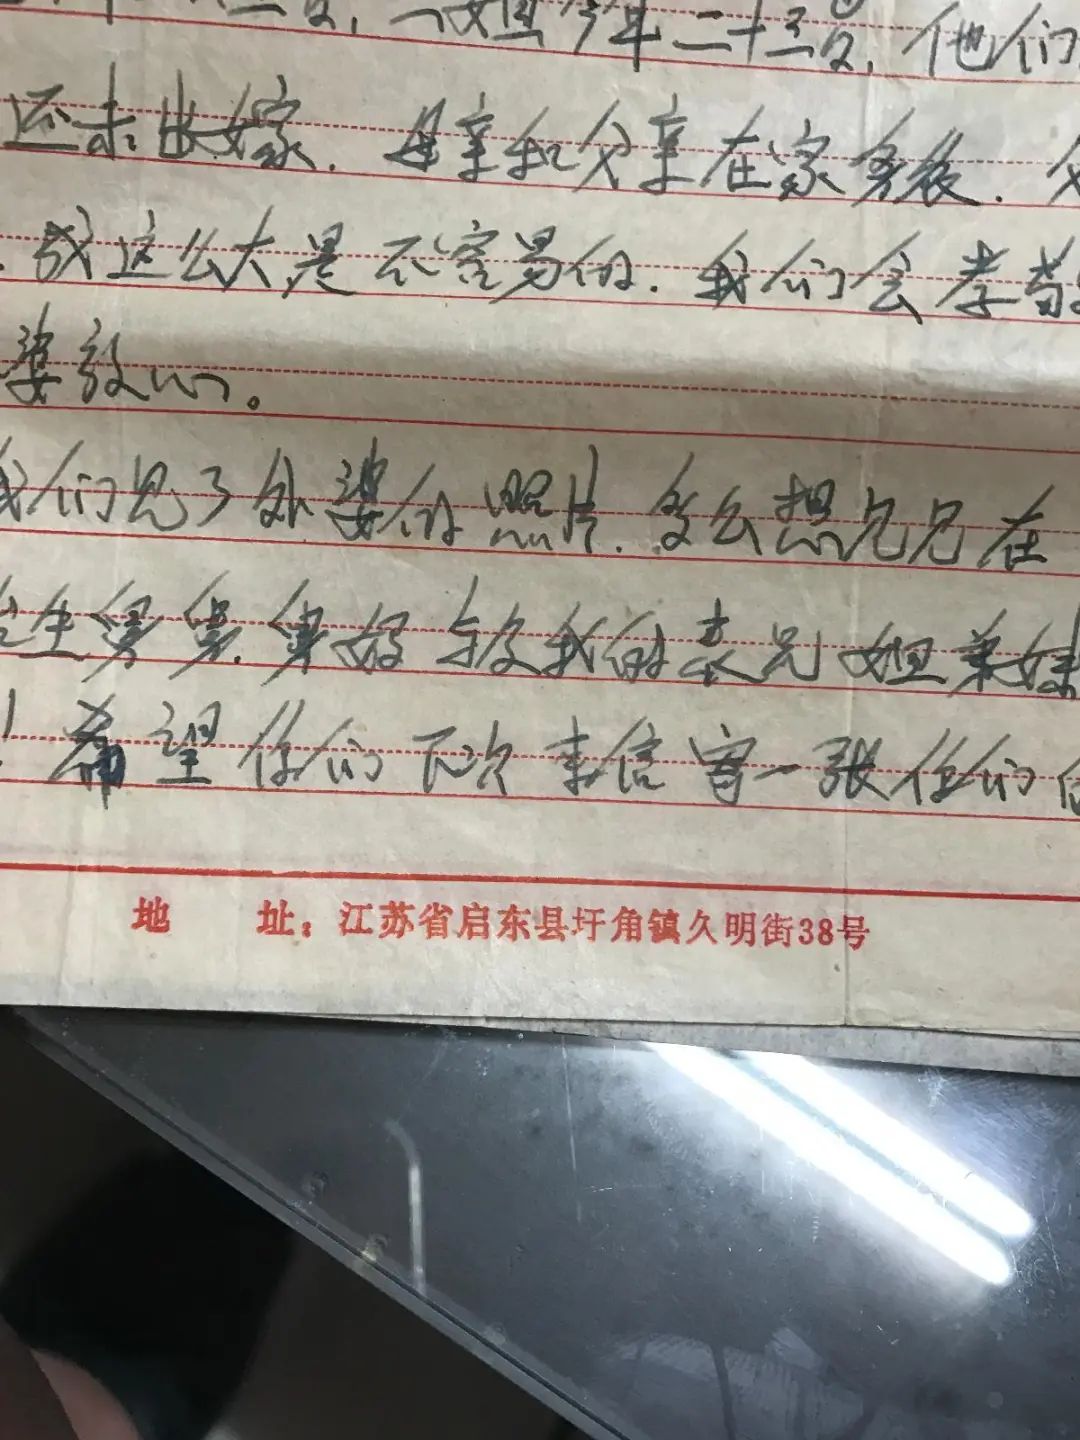 今年二十三岁，他们
还未出嫁．母亲和父亲在家务农．父
成这么大，是不容易的．我们会孝敬
婆放心。
我们见了外婆的照片．多么想见见在
舅舅．舅妈与及我的表兄姐弟妹
！希望你们下次来信寄一张你们的
地 址：江苏省启东县圩角镇久明街38号